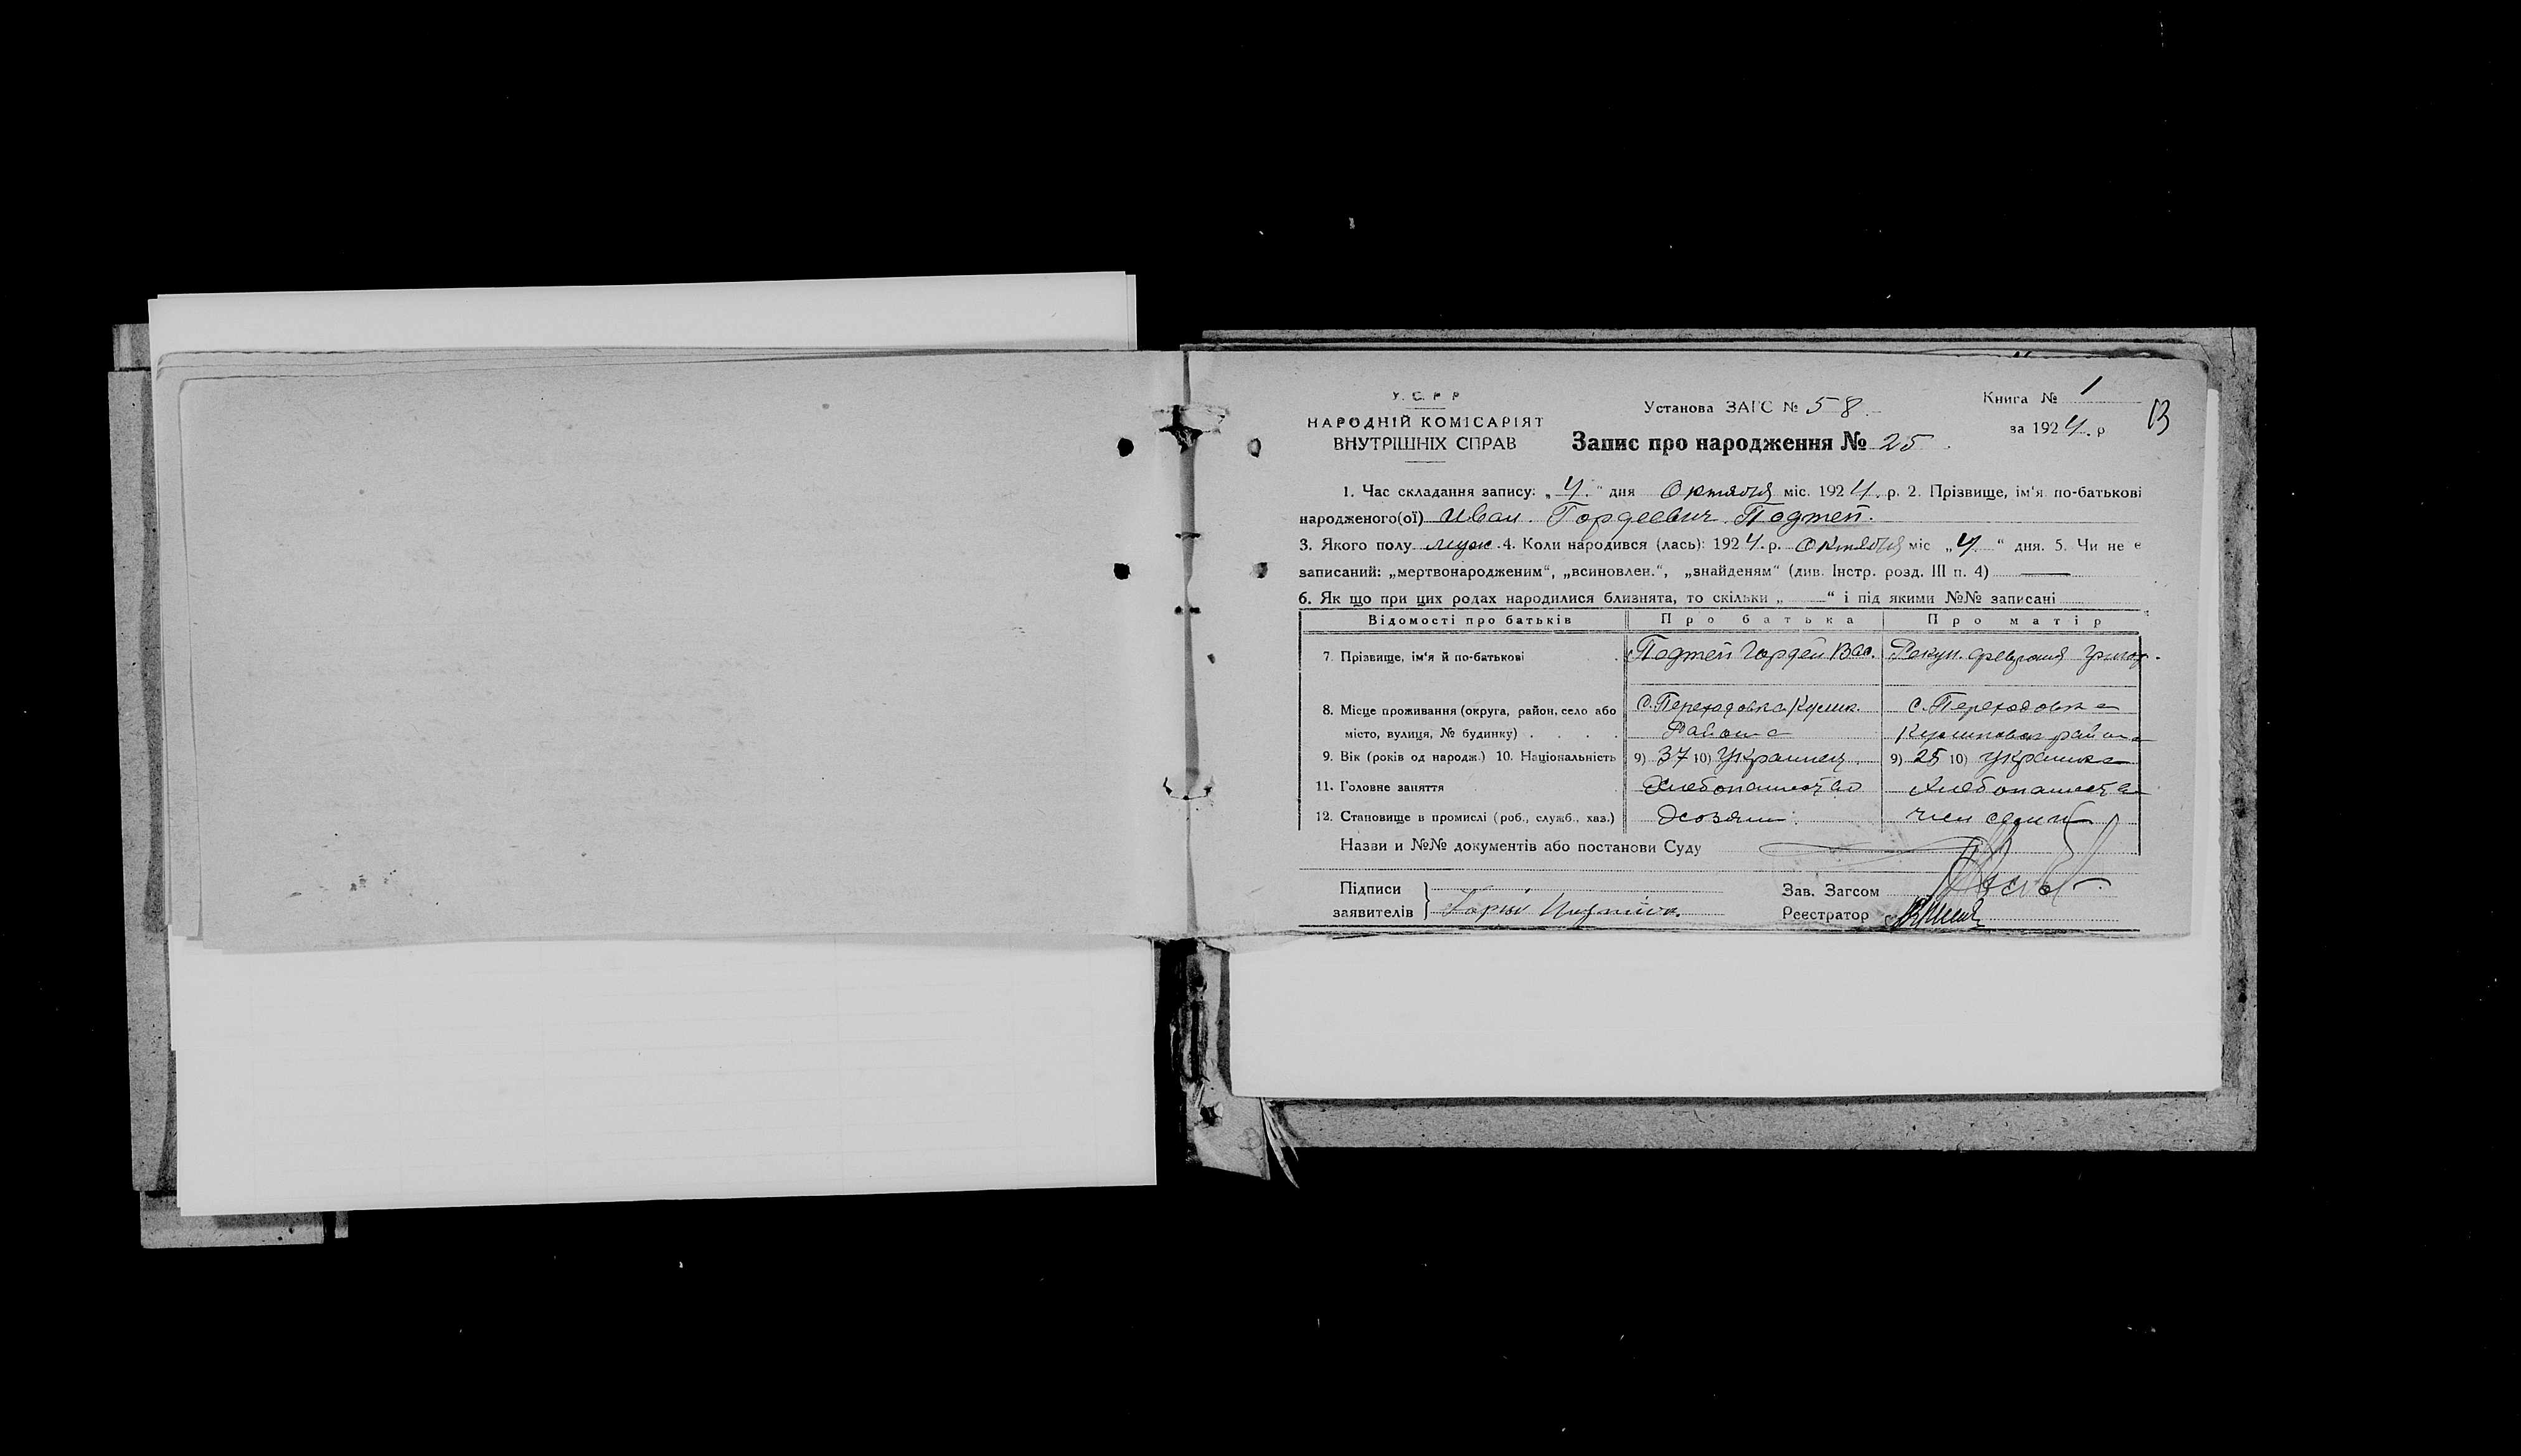 У. С. Р Р
НАРОДНІЙ КОМІСАРІЯТ
ВНУТРІШНІХ СПРАВ
Установа ЗАГС № 58
Запис про народження № 25
Книга № 1
за 1924. р
13
1. Час складання запису: „4.“ дня Октября міс. 1924. р. 2. Прізвище, ім‘я по-батькові
народженого(ої) Иван Гордеевич Подтеп.
3. Якого полу муж. 4. Коли народився (лась): 1924. р. Октября міс „4“ дня. 5. Чи не є
записаний: „мертвонародженим“, „всиновлен.“, „знайденям“ (див. Інстр. розд. III п. 4) —
6. Як що при цих родах народилися близнята, то скільки „ “ і під якими №№ записані
Відомості про батьків Про батька Про матір
7. Прізвище, ім‘я й по-батькові Подтеп Гордей Вас. Григор.
8. Місце проживання (округа, район, село або С. Переходовка с. Переходовка
місто, вулиця, № будинку) . . . . Района района
9. Вік (років од народж.) 10. Національність 9) 37 10) Украинец. 9) 25 10) Украинка
11. Головне заняття Хлебопашество хлебопашество
12. Становище в промислі (роб., служб., хаз.) Хозяин. член семьи
Назви и №№ документів або постанови Суду
Підписи
заявителів
Зав. Загсом
Реєстратор